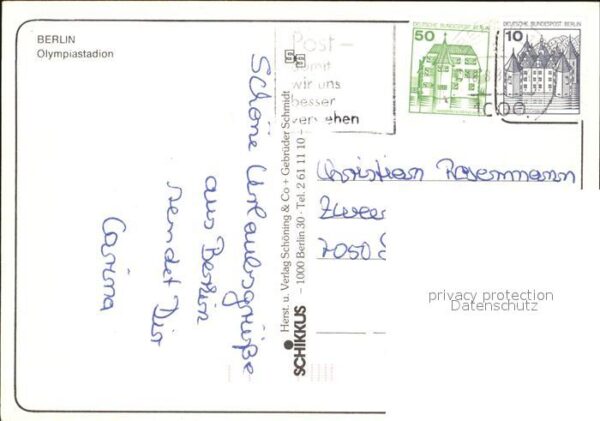 BERLIN
Olympiastadion
Schöne Urlaubsgrüße
aus Berlin
sendet Dir
Carina
SCHIKKUS
Herst. u. Verlag Schöning & Co + Gebrüder Schmidt
– 1000 Berlin 30 · Tel. 2 61 11 10 –
Post –
damit
wir uns
besser
verstehen
DEUTSCHE BUNDESPOST BERLIN
50
DEUTSCHE BUNDESPOST BERLIN
10
1000
Christian
7050
privacy protection
Datenschutz